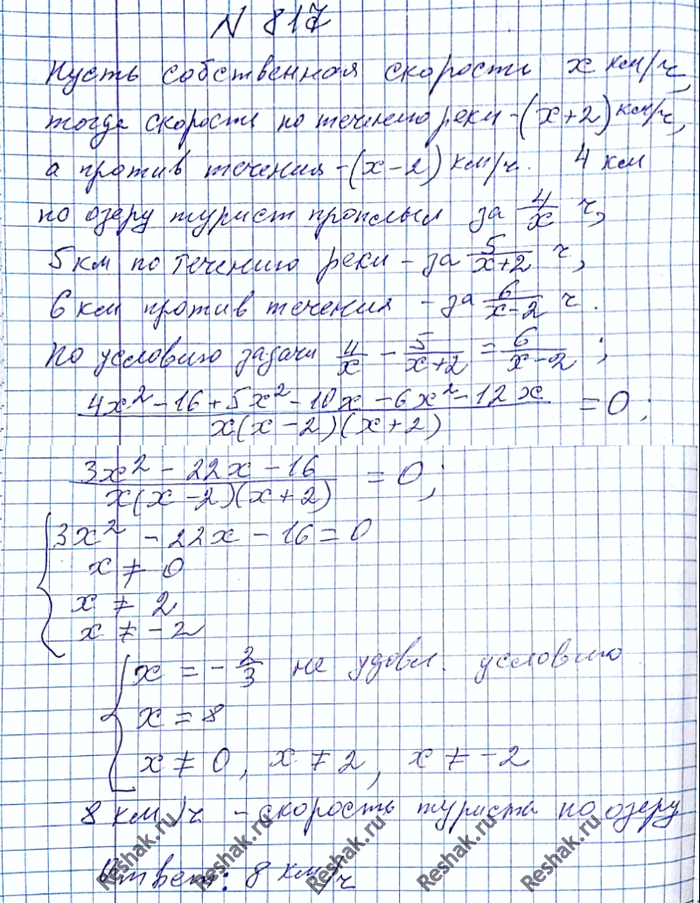 N 817
Пусть собственная скорость x км/ч,
тогда скорость по течению реки -(x+2) км/ч,
а против течения -(x-2) км/ч. 4 км
по озеру турист проплыл за 4/x ч,
5 км по течению реки - за 5/(x+2) ч,
6 км против течения - за 6/(x-2) ч.
По условию задачи 4/x - 5/(x+2) = 6/(x-2) ;
(4x² - 16 + 5x² - 10x - 6x² - 12x)/(x(x-2)(x+2)) = 0 ;
(3x² - 22x - 16)/(x(x-2)(x+2)) = 0 ;
{ 3x² - 22x - 16 = 0
x ≠ 0
x ≠ 2
x ≠ -2
{ x = - 2/3 не удовл. условию
x = 8
x ≠ 0, x ≠ 2, x ≠ -2
8 км/ч - скорость туриста по озеру
Ответ: 8 км/ч
Reshak.ru Reshak.ru Reshak.ru Reshak.ru Reshak.ru